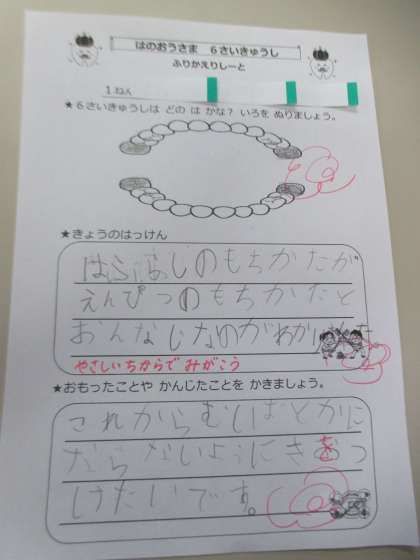 はのおうさま 6さいきゅうし
ふりかえりしーと
1ねん
★6さいきゅうしは どの は かな? いろを ぬりましょう。
★きょうのはっけん
はぶらしのもちかたが
えんぴつのもちかたと
おんなじなのがわかりました
やさしいちからで みがこう
★おもったことや かんじたことを かきましょう。
これからむしばとかに
ならないようにきをつ
けたいです。